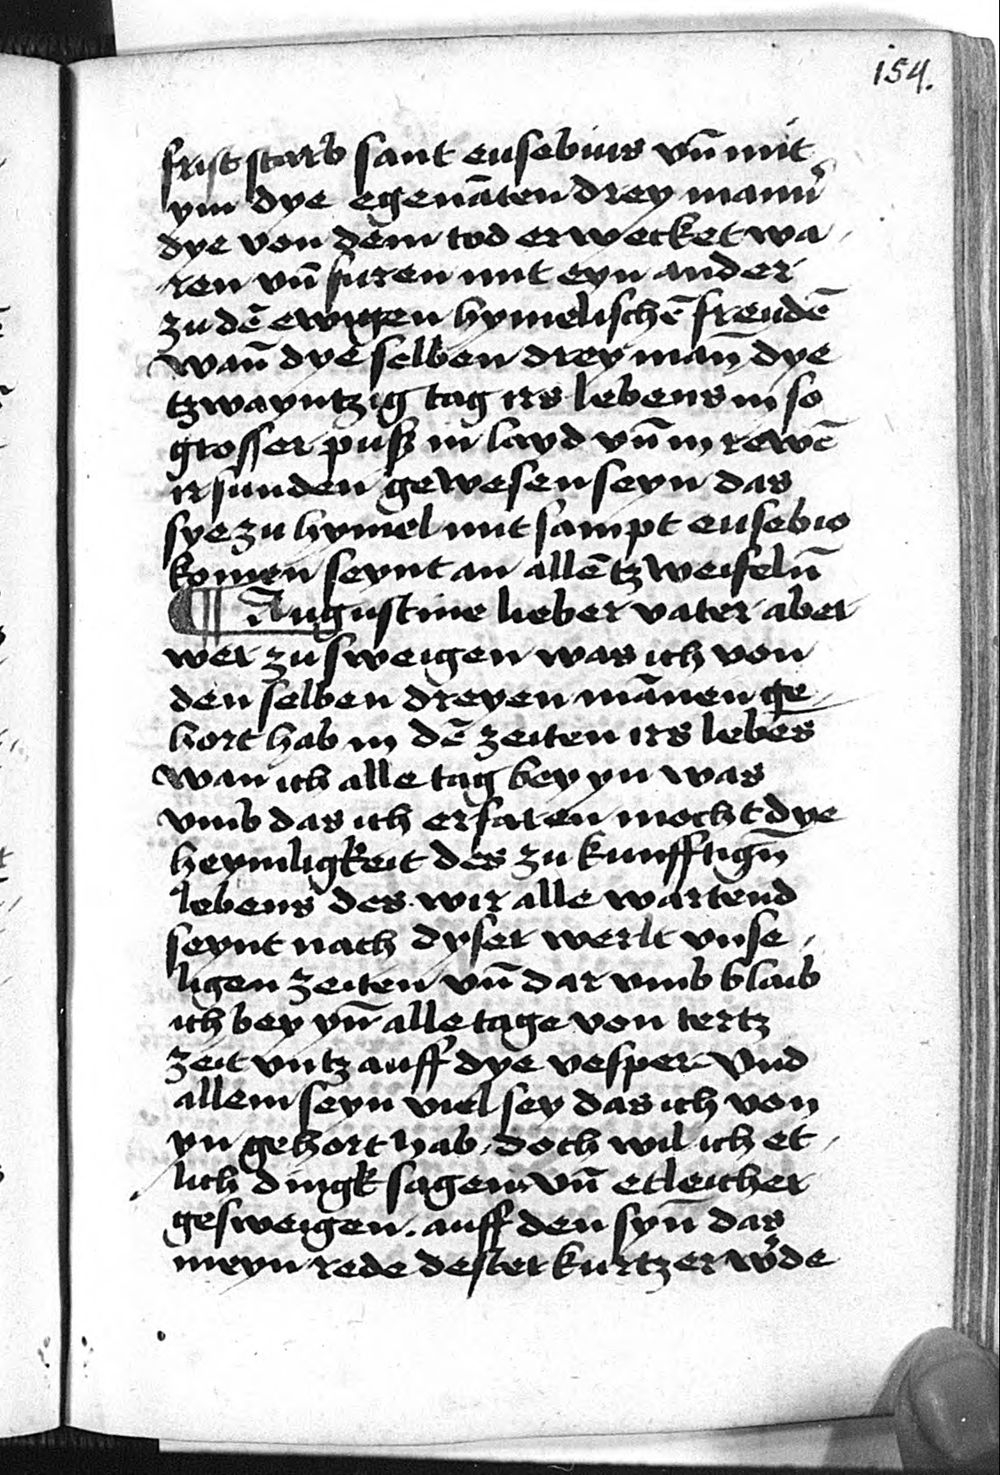 154.
frist starb sant eusebius vn̄ mit
ym dye egenāten drey mann̄
dye von dem tod erwecket wa
ren vn̄ furen mit eyn ander
zu dē ewigen hymelischē freudē
wan̄ dye selben drey man̄ dye
tzwayntzig tag irs lebens in so
grosser puß in layd vn̄ in rewē
ir sunden gewesen seyn das
sye zu hymel mit sampt eusebio
komen seynt an allē tzweifel vn̄
¶ Augustine lieber vater aber
wer zu sweigen was ich von
den selben dreyen mānen ge
hort hab in dē zeiten irs lebēs
wan ich alle tag bey yn was
vmb das ich erfaren mocht dye
heymligkeit des zu kunfftign̄
lebens des wir alle wartend
seynt nach dyser werlt vnse
ligen zeiten vn̄ dar vmb blaib
ich bey yn̄ alle tage von tertz
zeit vntz auff dye vesper Vnd
allein seyn viel sey das ich von
yn gehort hab doch wil ich et
lich dingk sagen vn̄ etleicher
gesweigen. auff den syn̄ das
meyn rede dester kurtzer w̄de